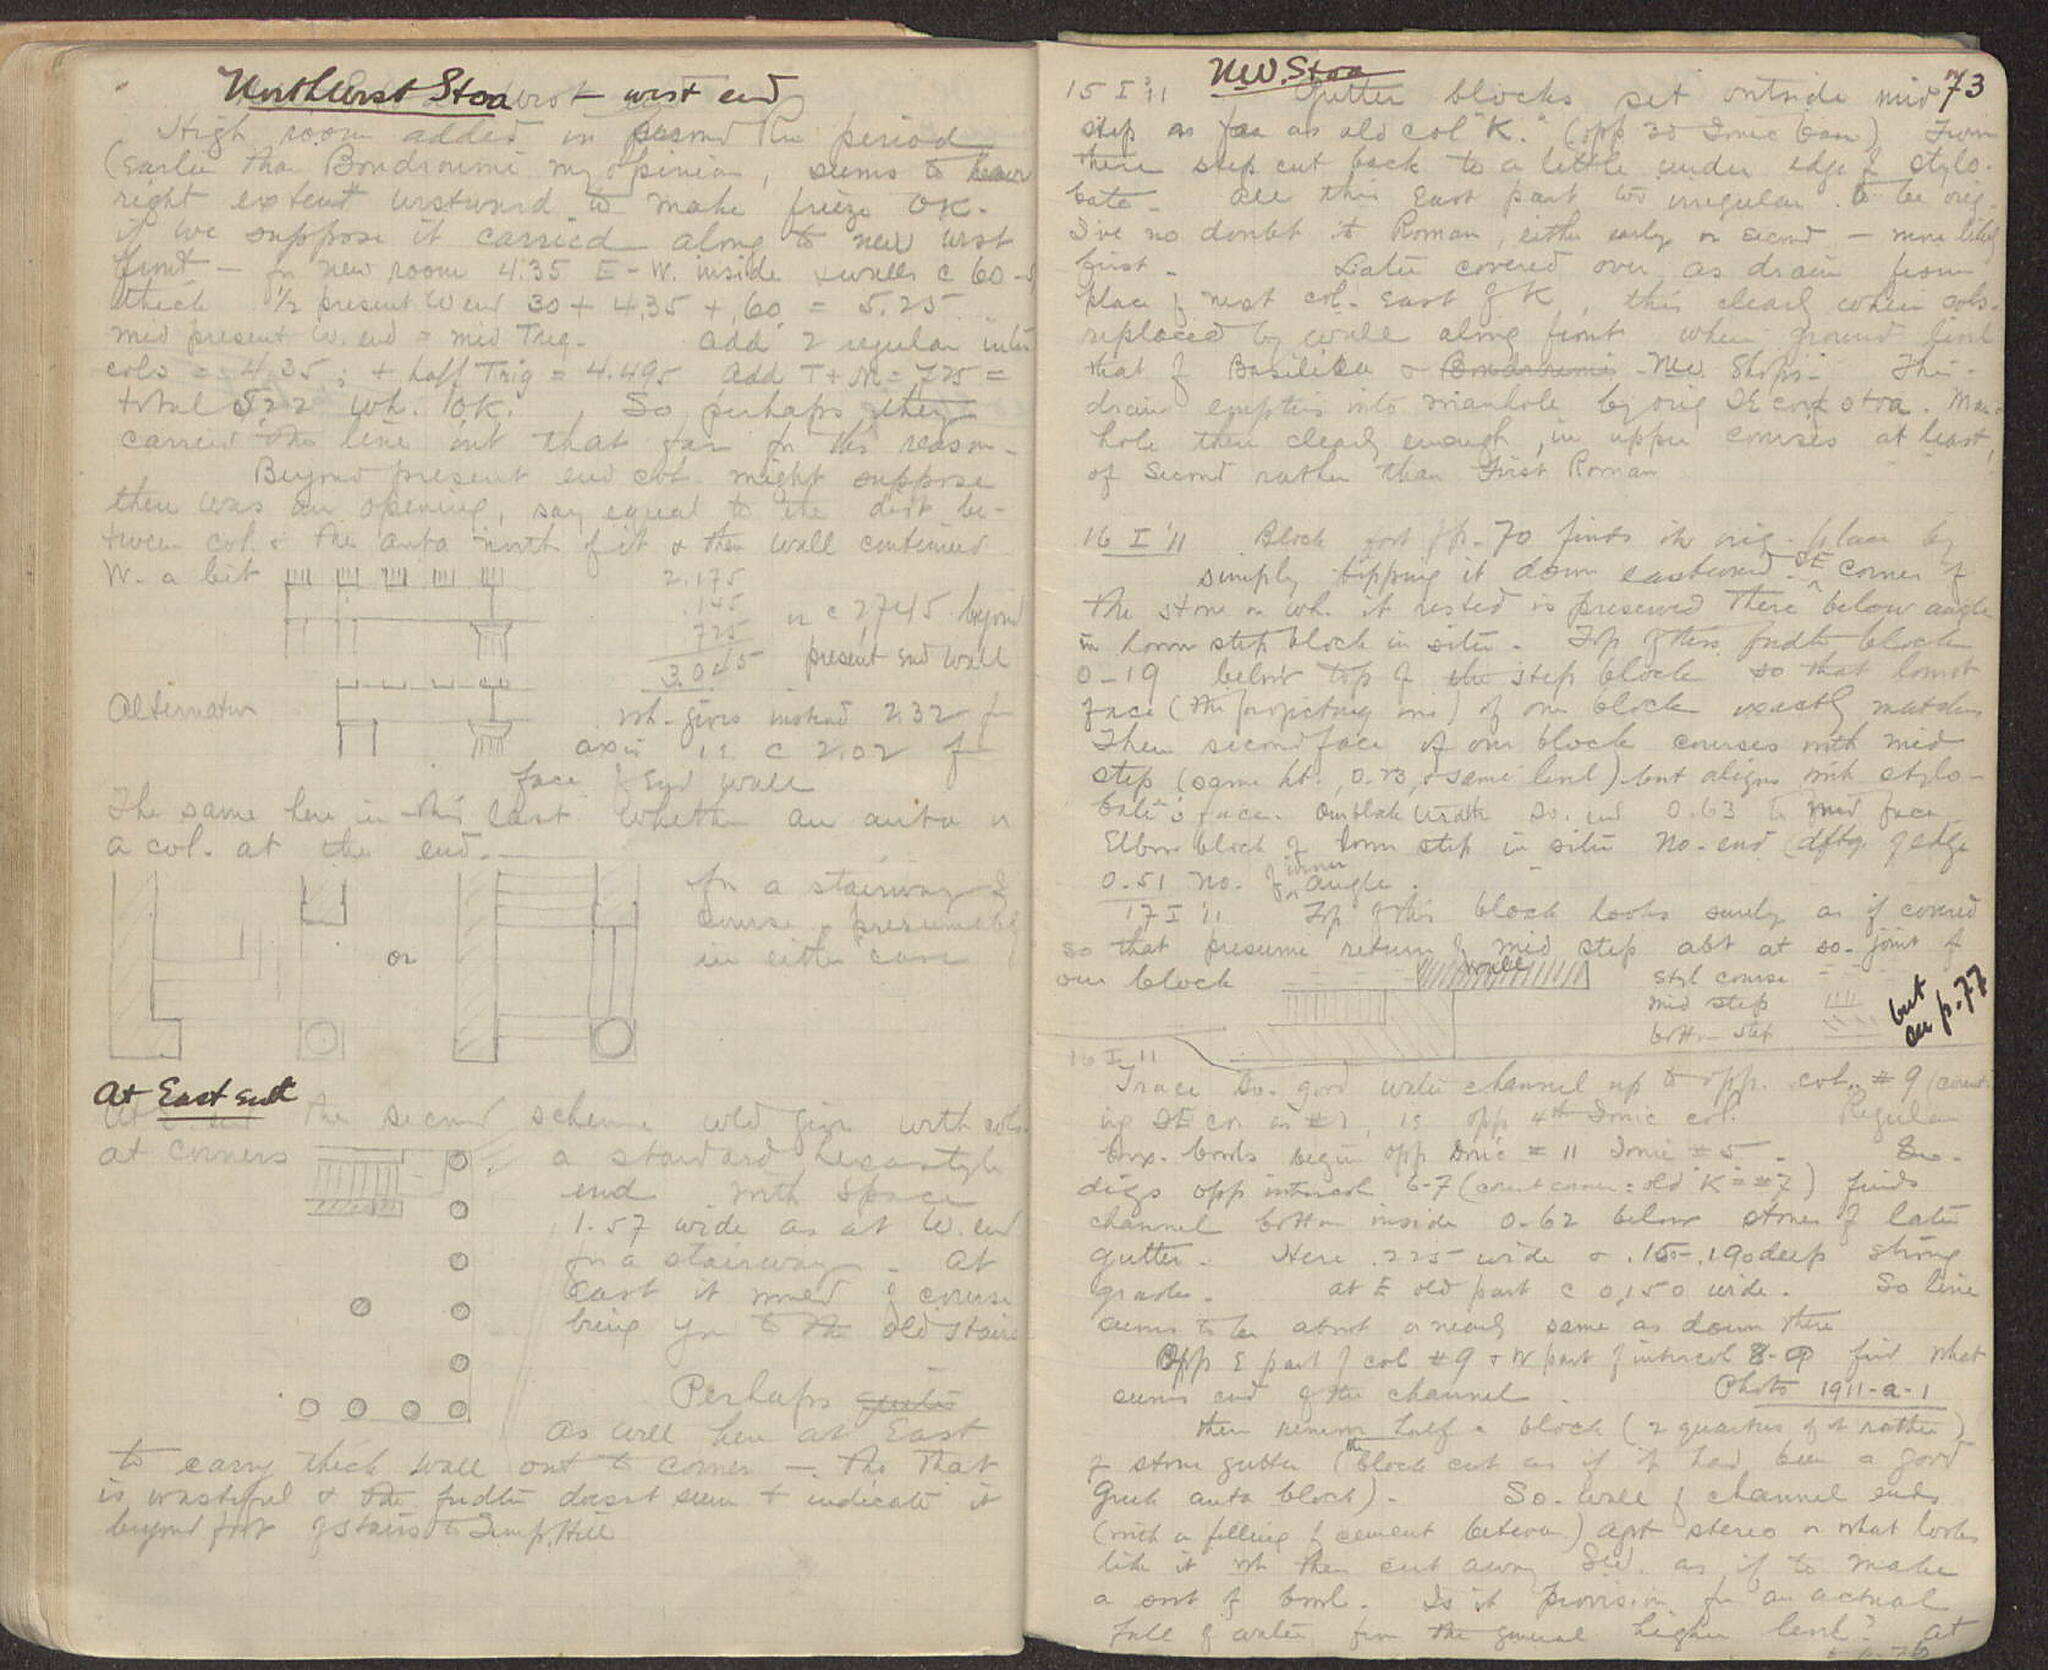 NorthWest Stoa west end
High room added in second Rn period
(Earlier than Boudroumi my opinion, seems to have
right extent westward to make frieze OK.
if we suppose it carried along to new west
front — for new room 4.35 E-W. inside & walls c 60
thick ½ present W end 30 + 4.35 + .60 = 5.25
mid present W. end = mid Trig. Add 2 regular inter
cols = 4.35; + half Trig = 4.495 Add T + M = .725 =
total 5.22 wh. OK. So perhaps they
carried the line out that far for this reason.
Beyond present end col. might suppose
there was an opening, say equal to the dist be-
tween col. & the anta north of it & then wall continued
W. a bit
2.175
.145
.725
3.045
or c 2.745 beyond
present end wall
Alternative
wh. gives instead 2.32 for
axis is c 2.02 f
face of End wall
The same here in this last whether an anta or
a col. at the end.
or
for a stairway of
course, presumably
in either case
At East end
the second scheme wld give with cols.
at corners
a standard hexastyle
end with space
1.57 wide as at W. end
for a stairway. At
East it would of course
bring you to the old stairs
Perhaps quite
as well here at East
to carry thick wall out to corner — tho that
is wasteful & the fndtn doesnt seem to indicate it
beyond foot of stairs to Temp. Hill
N.W. Stoa
73
15 I '11 Gutter blocks set outside mid
step as far as old col "K." (opp 3d Ionic base) From
there step cut back to a little under edge of stylo-
bate. All this East part too irregular to be orig.
I've no doubt it Roman, either early or second — more likely
first. Later covered over as drain from
place of next col. East of K, this clearly when cols.
replaced by wall along front when ground level
that of Basilica & Boudroumi N.W. Shops. This
drain empties into manhole by orig SE cor of stoa. Man-
hole then clearly enough, in upper courses at least,
of Second rather than First Roman
16 I '11 Block fort p. 70 finds its orig. place by
simply tipping it down eastward. SE corner of
the stone on wh. it rested is preserved there below angle
in lower step block in situ. Top of this fndtn block
0.19 below top of the step block so that lowest
face (the projecting one) of our block exactly matches
Then second face of our block courses with mid
step (same ht., 0.23, & same level) but aligns with stylo-
bate's face. Our block so. end 0.63 to mid face
Elbow block of lower step in situ No. end (dftg. of edge
0.51 no. of inner angle.
17 I '11 Top of this block looks surely as if covered
so that presume return of mid step abt at so. joint of
our block
wall
Styl course
mid step
bottom step
but
see p. 77
16 I '11
Trace So. good water channel up to opp. col. #9 (count-
ing SE cor as #1, is opp 4th Ionic col. Regular
box. bowls begin opp Doric #11 Ionic #5. So.
digs opp intercol 6-7 (count corner: old "K" = #7) finds
channel bottom inside 0.62 below stone of later
gutter. Here .225 wide & .15-.190 deep strong
grade. At E old part c 0,150 wide. So line
seems to be about or nearly same as down there
Opp E part of col #9 & W part of intercol 8-9 find what
seems end of the channel. Photo 1911-a-1
then remove half a block (2 quarters of it rather)
of stone gutter (the block cut as if it had been a good
Greek anta block). So. wall of channel ends
(with a filling of cement between) agst stereo or what looks
like it wh then cut away SW. as if to make
a sort of bowl. Is it provision for an actual
fall of water from the general higher level? At